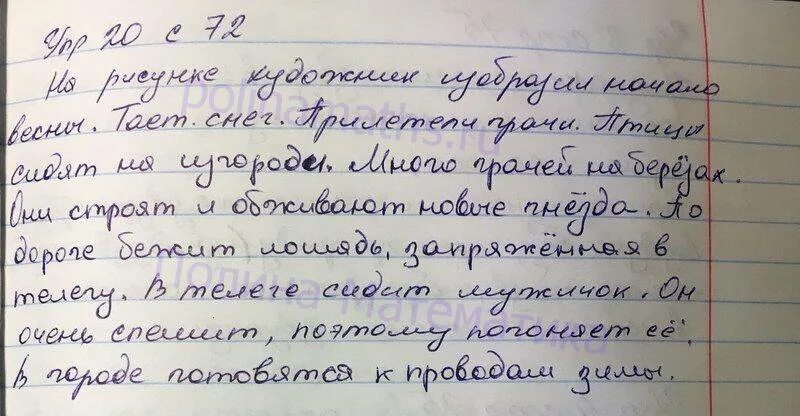 Упр 20 с 72
На рисунке художник изобразил начало
весны. Тает снег. Прилетели грачи. Птицы
сидят на изгороди. Много грачей на берёзах.
Они строят и обживают новые гнёзда. По
дороге бежит лошадь, запряжённая в
телегу. В телеге сидит мужичок. Он
очень спешит, поэтому погоняет её.
В городе готовятся к проводам зимы.
polinamaths.ru
Полина-Математика